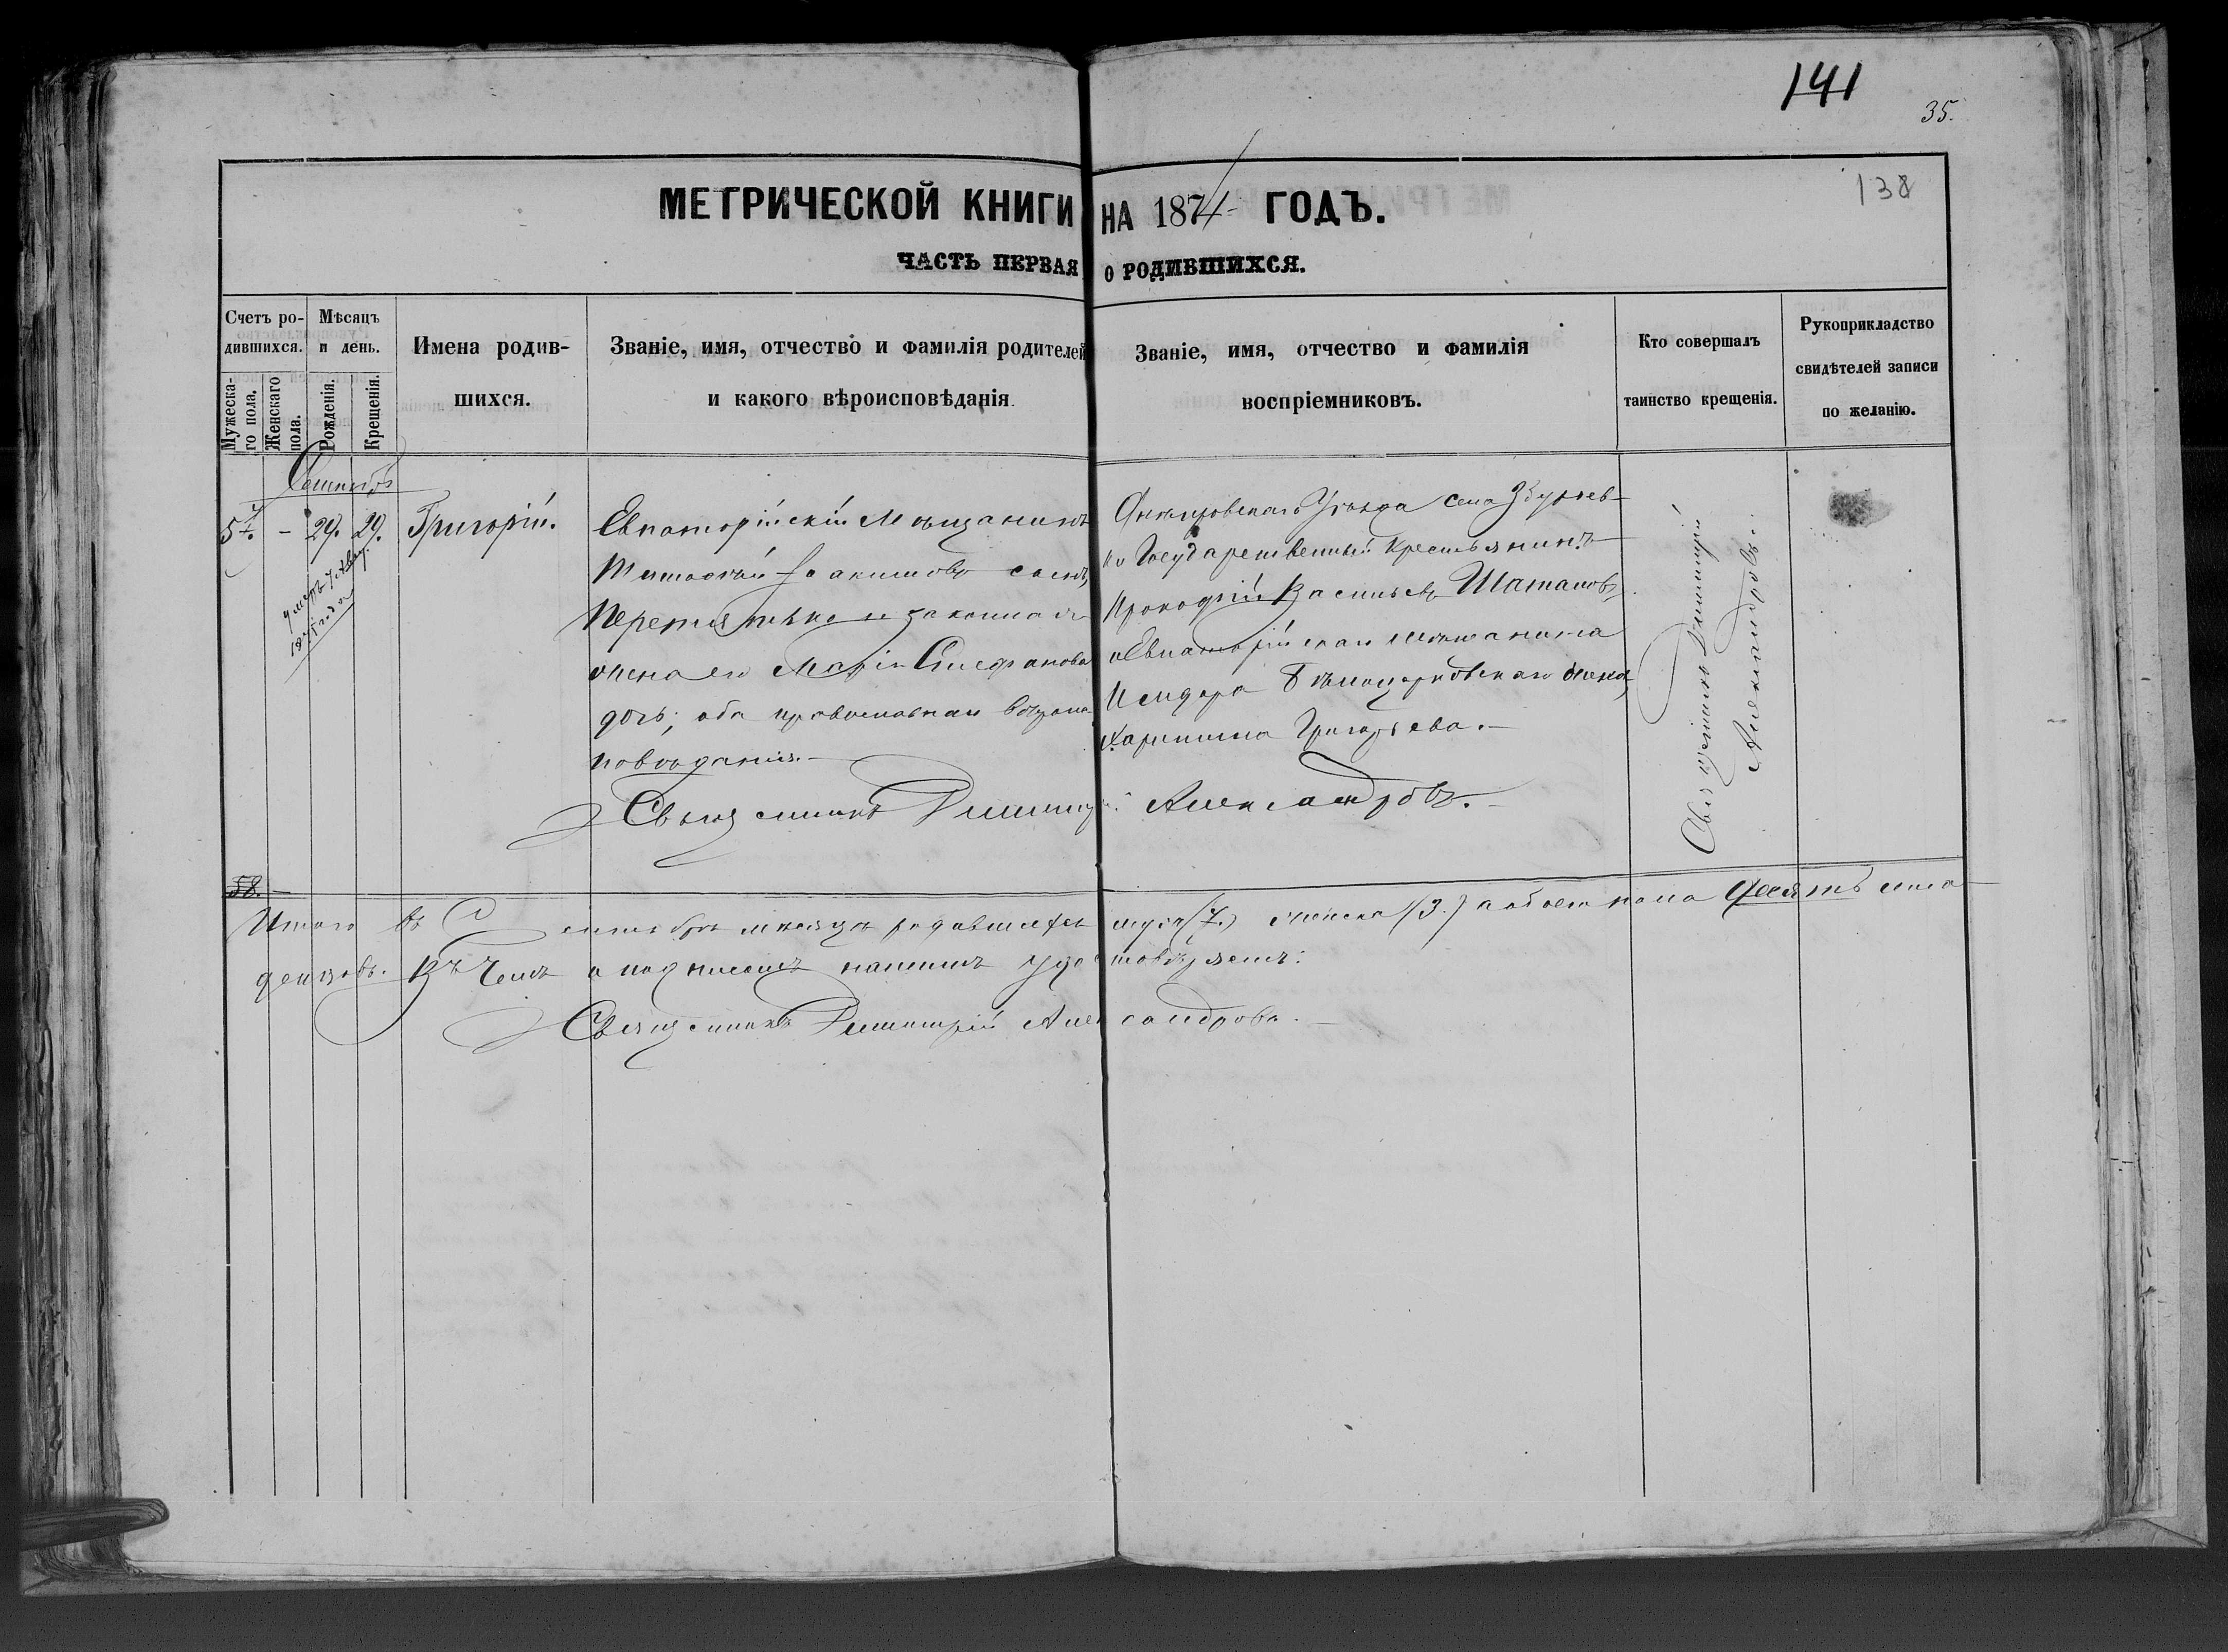 141
35.
138
МЕТРИЧЕСКОЙ КНИГИ НА 1874 ГОДЪ.
ЧАСТЬ ПЕРВАЯ О РОДИВШИХСЯ.
Счетъ ро-
дившихся.
Мужеска-
го пола.
Женскаго
пола.
Мѣсяцъ
и день.
Рожденія.
Крещенія.
Имена родив-
шихся.
Званіе, имя, отчество и фамилія родителей
и какого вѣроисповѣданія.
Званіе, имя, отчество и фамилія
воспріемниковъ.
Кто совершалъ
таинство крещенія.
Рукоприкладство
свидѣтелей записи
по желанію.
Сентябрь
57. - 29. 29.
умеръ 7
1875 года
Григорій.
Евпаторійскій Мѣщанинъ
Іоакимовъ сынъ,
Перетятько и законная
жена его Марія Стефанова
дочь; оба православнаго
повѣданія.
Священникъ Димитрій Александровъ.
Днѣпровскаго Уѣзда села Збурьев-
ки Государственный Крестьянинъ
Прокофій Васильевъ Шаталовъ,
и Евпаторійскаго мѣщанина
Исидора Бѣлоцерковскаго жена,
Харитина Григорьева.
Священникъ Димитрій
Александровъ.
58.
Итого въ Сентябрѣ мѣсяцѣ родившихся муж. (7.) женска (3.) а обоего пола Десять
Въ чемъ и подписомъ нашимъ удостовѣряемъ:
Священникъ Димитрій Александровъ.